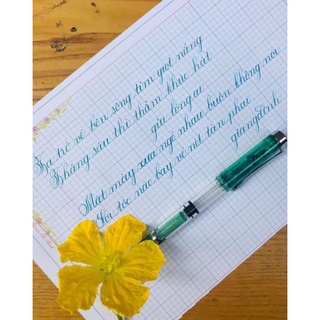 Ta trở về bên sông tìm giọt nắng
Tháng sáu thì thầm khúc hát
giữa lòng ai
Mắt mây xưa ngơ nhau buồn không nói
Sợi tóc nào bay về nét tàn phai